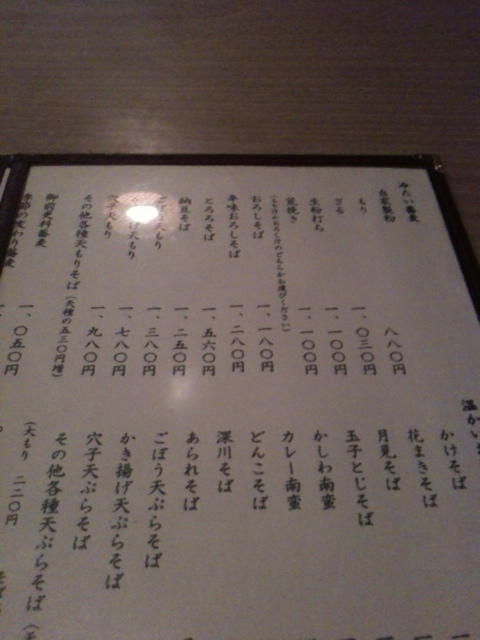 冷たい蕎麦
自家製粉
もり 八八〇円
ざる 一、〇三〇円
生粉打ち 一、一〇〇円
荒挽き 一、一〇〇円
(もり汁かおろし汁のどちらかお選びください)
おろしそば 一、一八〇円
辛味おろしそば 一、二八〇円
とろろそば 一、五六〇円
納豆そば 一、二五〇円
ごぼう天もり 一、三八〇円
かき揚げ天もり 一、七八〇円
穴子天もり 一、九八〇円
その他各種天もりそば(天種の五三〇円増)
御前更科蕎麦 一、〇五〇円
季節の変わり蕎麦
温かい
かけそば
花まきそば
月見そば
玉子とじそば
かしわ南蛮
カレー南蛮
どんこそば
深川そば
あられそば
ごぼう天ぷらそば
かき揚げ天ぷらそば
穴子天ぷらそば
その他各種天ぷらそば
(大もり 二二〇円